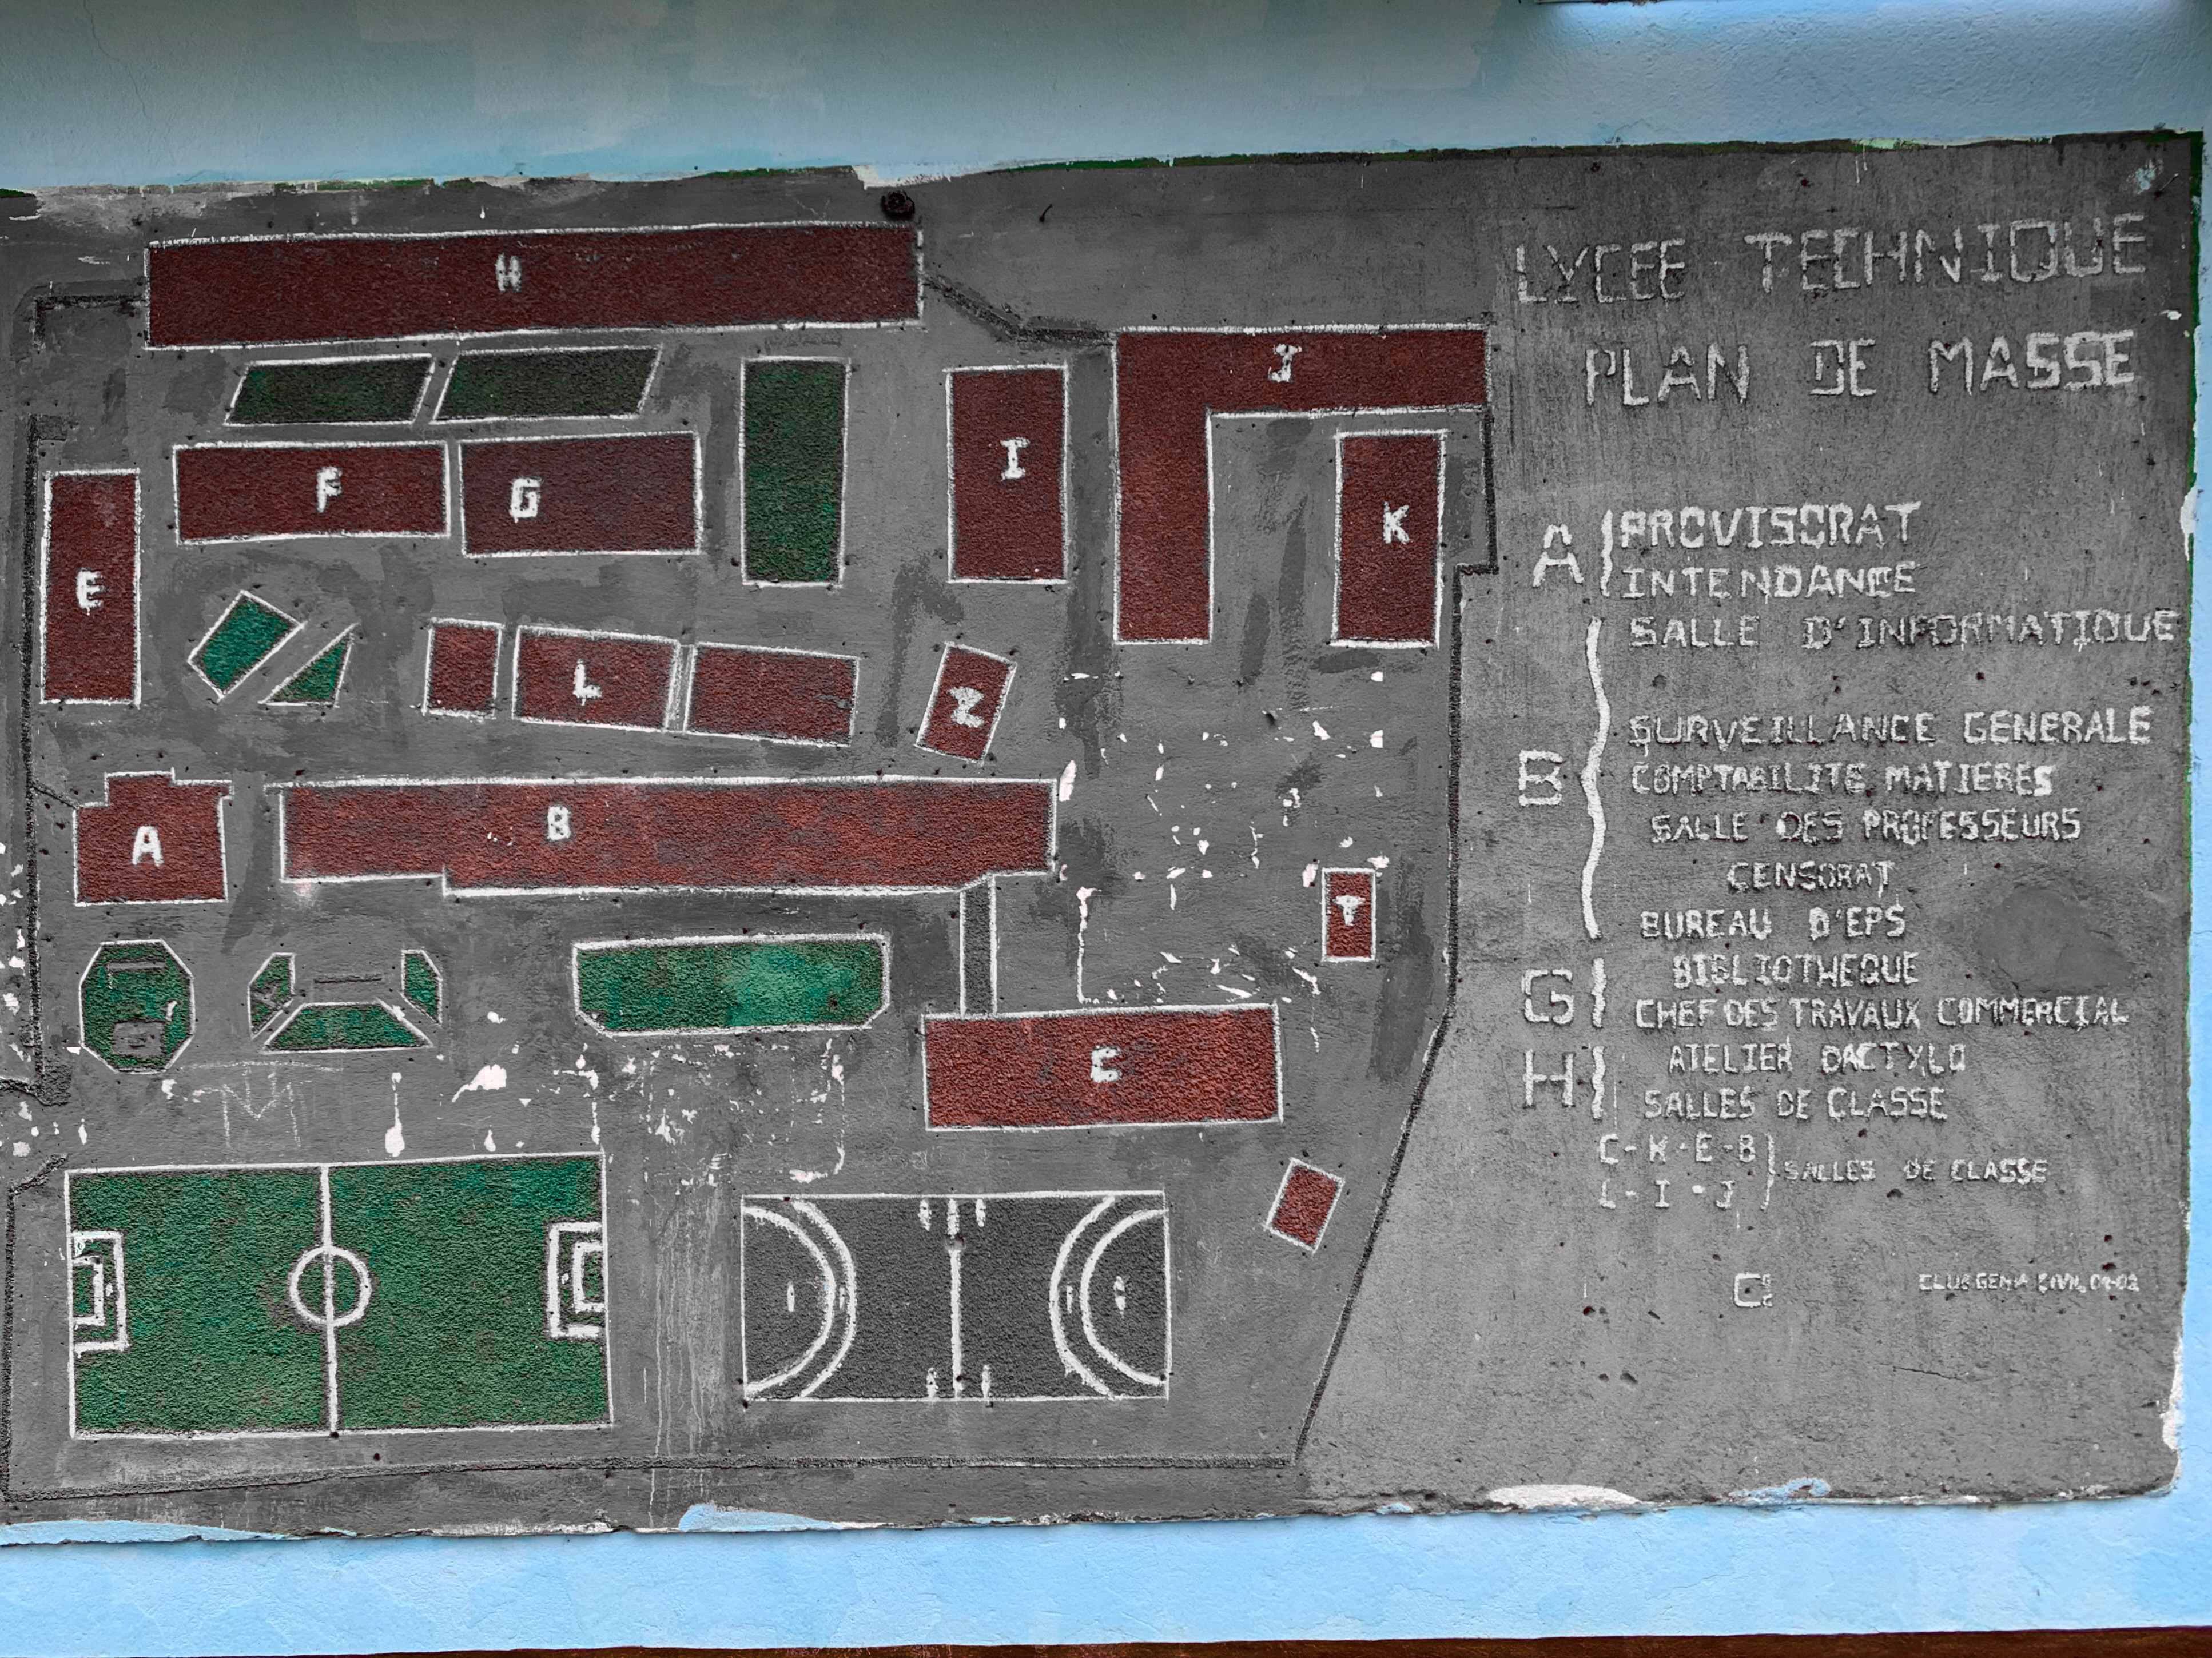 H
J
I
K
F
G
E
L
Z
B
A
T
C
LYCEE TECHNIQUE
PLAN DE MASSE
A PROVISORAT
INTENDANCE
SALLE D'INFORMATIQUE
SURVEILLANCE GENERALE
B COMPTABILITE MATIERES
SALLE DES PROFESSEURS
CENSORAT
BUREAU D'EPS
BIBLIOTHEQUE
G CHEF DES TRAVAUX COMMERCIAL
H ATELIER DACTYLO
SALLES DE CLASSE
C-K-E-B
L-I-J
SALLES DE CLASSE